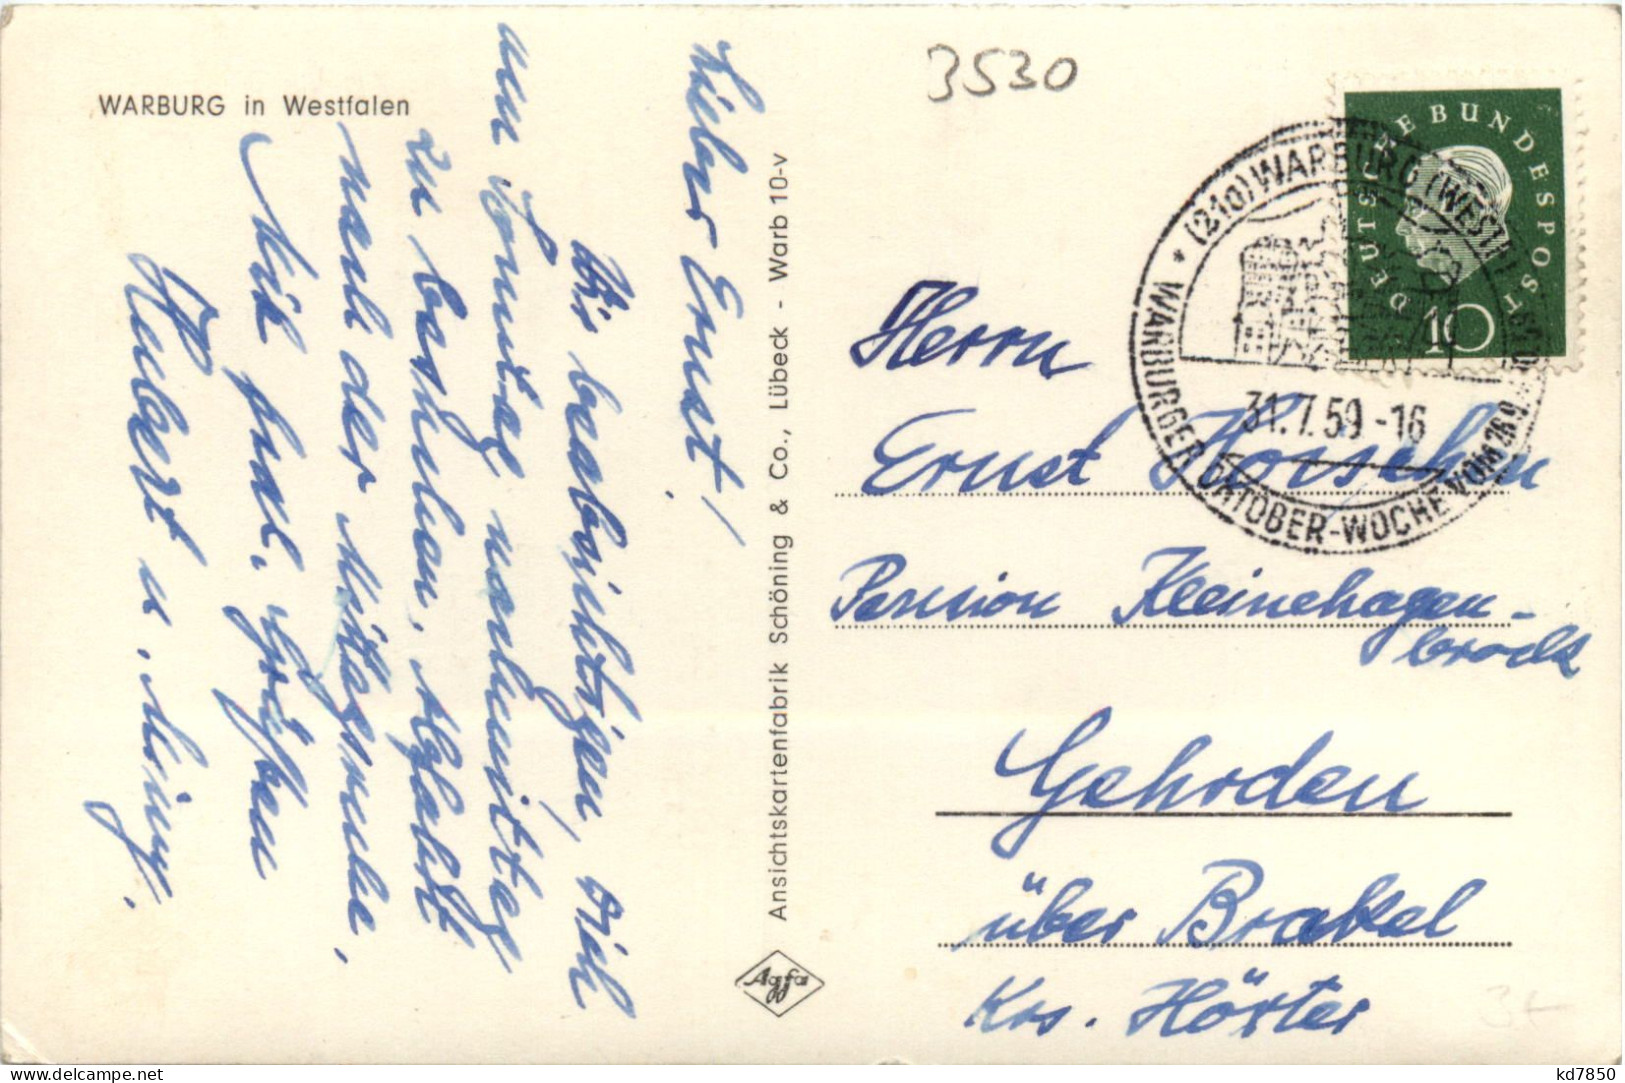 WARBURG in Westfalen
Lieber Ernst!
Wir beabsichtigen, Dich
am Sonntag nachmittag
zu besuchen.
nach der Mittagsruhe.
Grüßen
Hubert u.
Ansichtskartenfabrik Schöning & Co., Lübeck - Warb 10-v
Agfa
3530
DEUTSCHE BUNDESPOST
10
* (210) WARBURG (WESTF)
31.7.59-16
WARBURGER OKTOBER-WOCHE VOM 26.9.
Herrn
Ernst
Pension Kleinehagen-
brock
Gehrden
über Brakel
Krs. Höxter
kd7850